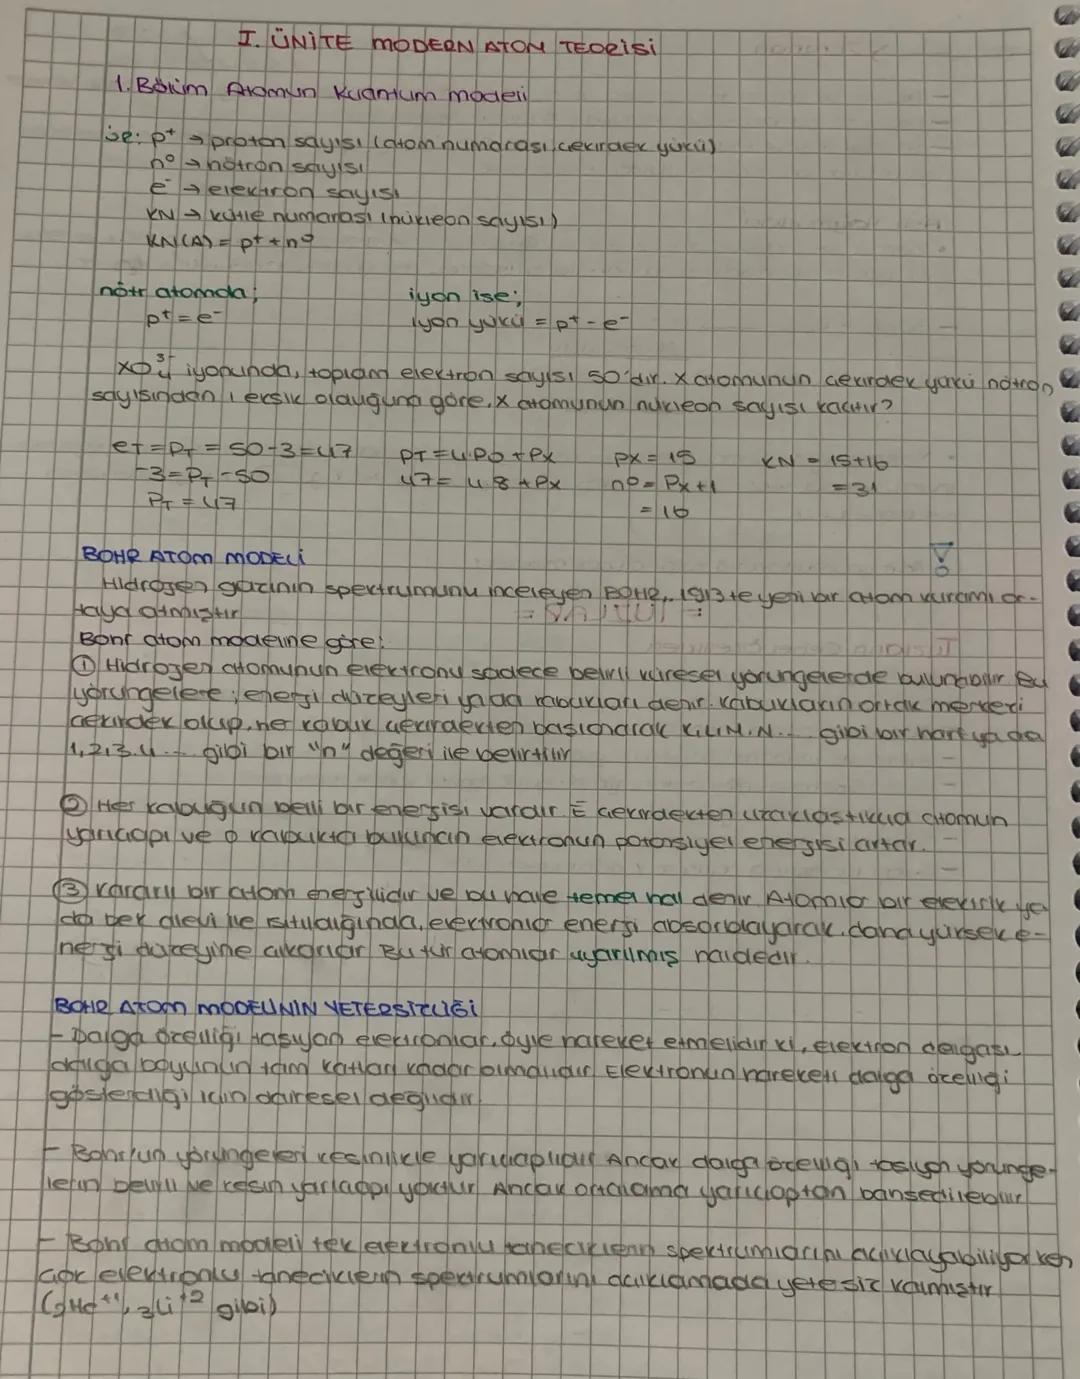 I. ÜNİTE MODERN ATOM TEORİSİ
1. Bölüm Atomun Kuantum modeli
p⁺ → proton sayısı (atom numarası, çekirdek yükü)
n⁰ → nötron sayısı
e⁻ → elektron sayısı
KN → kütle numarası (nükleon sayısı)
KN(A) = p⁺ + n⁰
nötr atomda; iyon ise;
p⁺ = e⁻ iyon yükü = p⁺ - e⁻
XO₄³⁻ iyonunda, toplam elektron sayısı 50'dir. X atomunun çekirdek yükü nötron
sayısından 1 eksik olduğuna göre, X atomunun nükleon sayısı kaçtır?
eT = PT = 50-3 = 47 PT = 4.PO + PX PX = 15 KN = 15+16
-3 = PT - 50 47 = 4.8 + PX n⁰ = PX+1 = 31
PT = 47 = 16
BOHR ATOM MODELİ
Hidrojen gazının spektrumunu inceleyen BOHR, 1913'te yeni bir atom kuramı or-
taya atmıştır
Bohr atom modeline göre:
① Hidrojen atomunun elektronu sadece belirli küresel yörüngelerde bulunabilir. Bu
yörüngelere; enerji düzeyleri ya da kabukları denir. Kabukların ortak merkezi
çekirdek olup, her kabuk çekirdekten başlanarak K,L,M,N... gibi bir harf ya da
1,2,3,4... gibi bir "n" değeri ile belirtilir
② Her kabuğun belli bir enerjisi vardır. E çekirdekten uzaklaştıkça atomun
yarıçapı ve o kabukta bulunan elektronun potansiyel enerjisi artar.
③ Kararlı bir atom enerjilidir ve bu hale temel hal denir. Atomlar bir elektrik ya
da bek alevi ile ısıtıldığında, elektronlar enerji absorblayarak, daha yüksek e-
nerji düzeyine çıkarlar Bu tür atomlar uyarılmış haldedir.
BOHR ATOM MODELİNİN YETERSİZLİĞİ
- Dalga özelliği taşıyan elektronlar, öyle hareket etmelidir ki, elektron dalgası
dalga boyunun tam katları kadar olmalıdır Elektronun hareketi dalga özelliği
gösterdiği için dairesel değildir
- Bohr'un yörüngeleri kesinlikle yarıçaplıdır Ancak dalga özelliği taşıyan yörünge-
lerin belirli ve kesin yarıçapı yoktur Ancak ortalama yarıçaptan bahsedilebilir
- Bohr atom modeli tek elektronlu taneciklerin spektrumlarını açıklayabiliyorken
çok elektronlu taneciklerin spektrumlarını açıklamada yetersiz kalmıştır
(₂He⁺¹, ₃Li⁺² gibi)